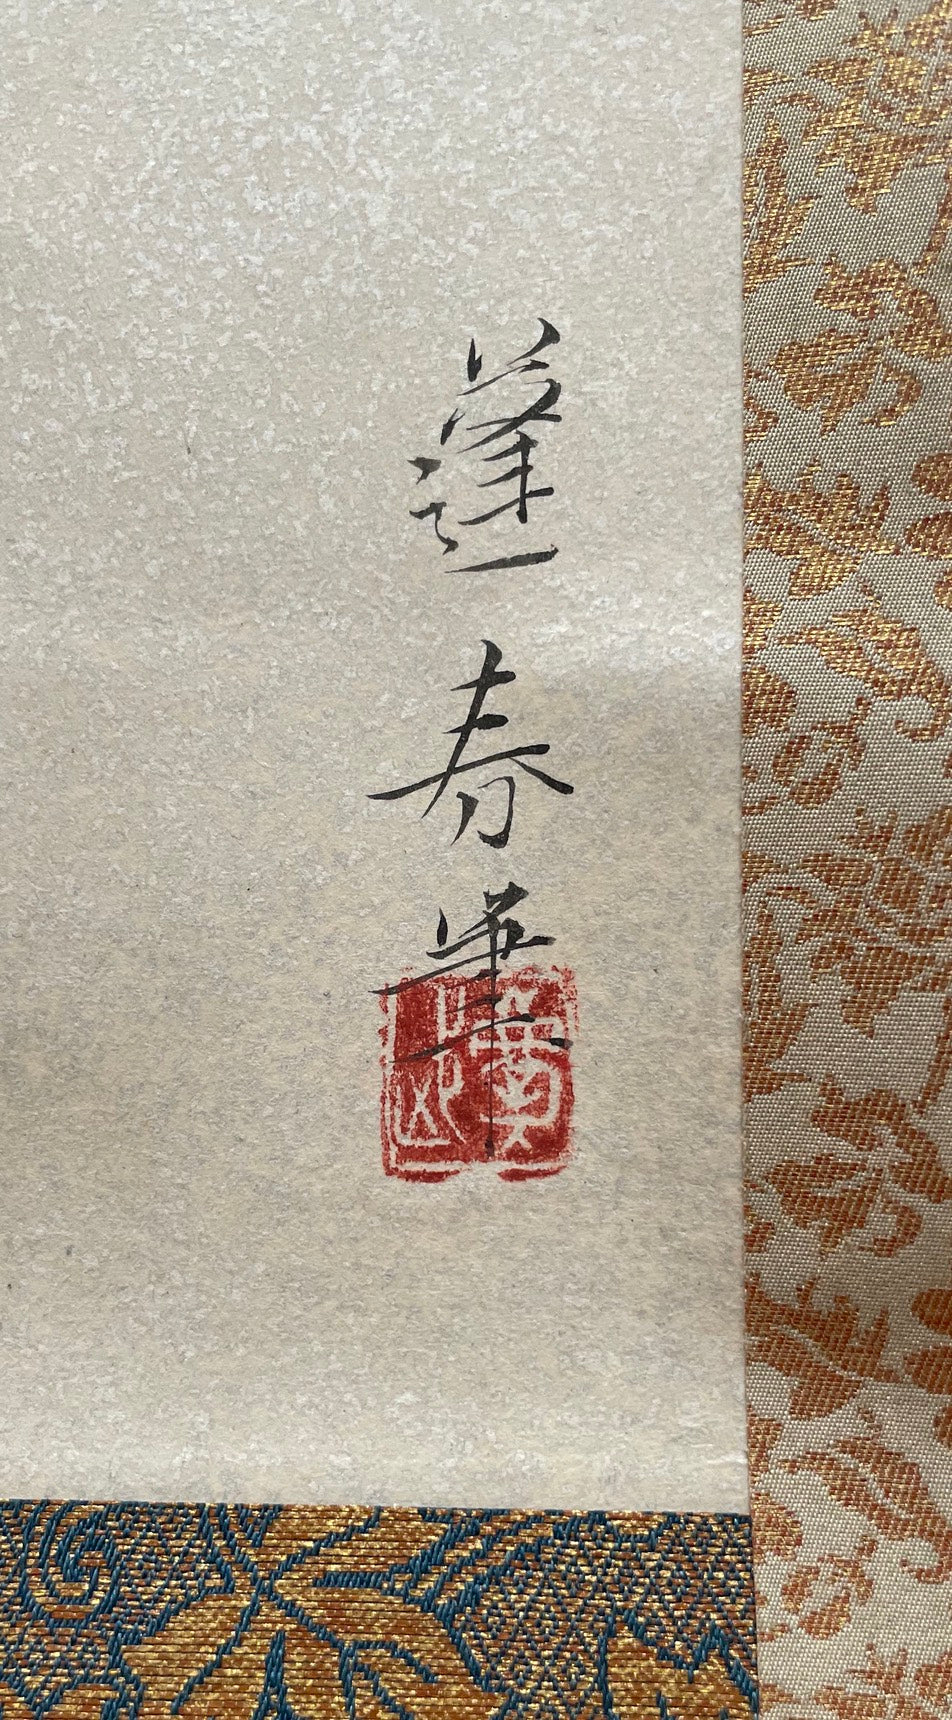 蓬春筆